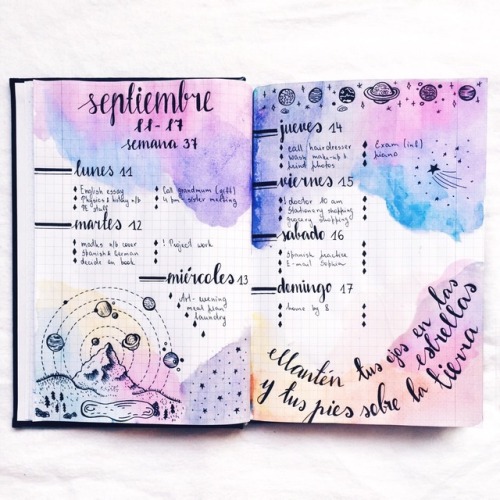 septiembre
11-17
semana 37
lunes 11
English essay
Physics & biology n/b
PE stuff
Call grandmum (gift)
4 pm - sister meeting
martes 12
maths n/b cover
Spanish & German
decide on book
! Project work
miércoles 13
Art-evening
meal plan?
laundry
jueves 14
call hairdresser
wash make-up b
print photos
Exam (inf)
piano
viernes 15
! doctor 10 am
Stationary shopping
grocery shopping
sábado 16
Spanish practise
E-mail Sophia
domingo 17
home by 8
Mantén tus ojos en las
estrellas
y tus pies sobre la tierra